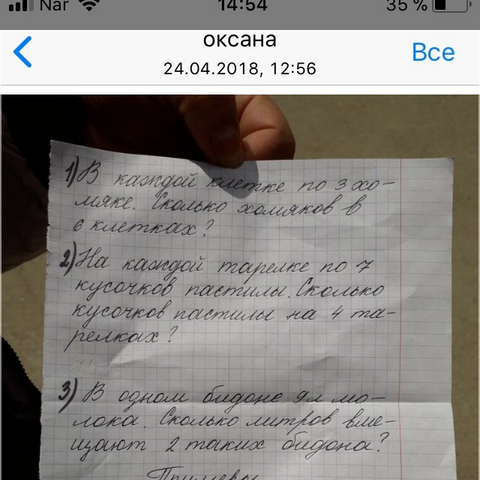 Nar 14:54 35 %
оксана
Все
24.04.2018, 12:56
1) В каждой клетке по 3 хо-
мяке. Сколько хомяков в
6 клетках?
2) На каждой тарелке по 7
кусочков пастилы. Сколько
кусочков пастилы на 4 та-
релках?
3) В одном бидоне 9л мо-
лока. Сколько литров вме-
щают 2 таких бидона?
Примеры